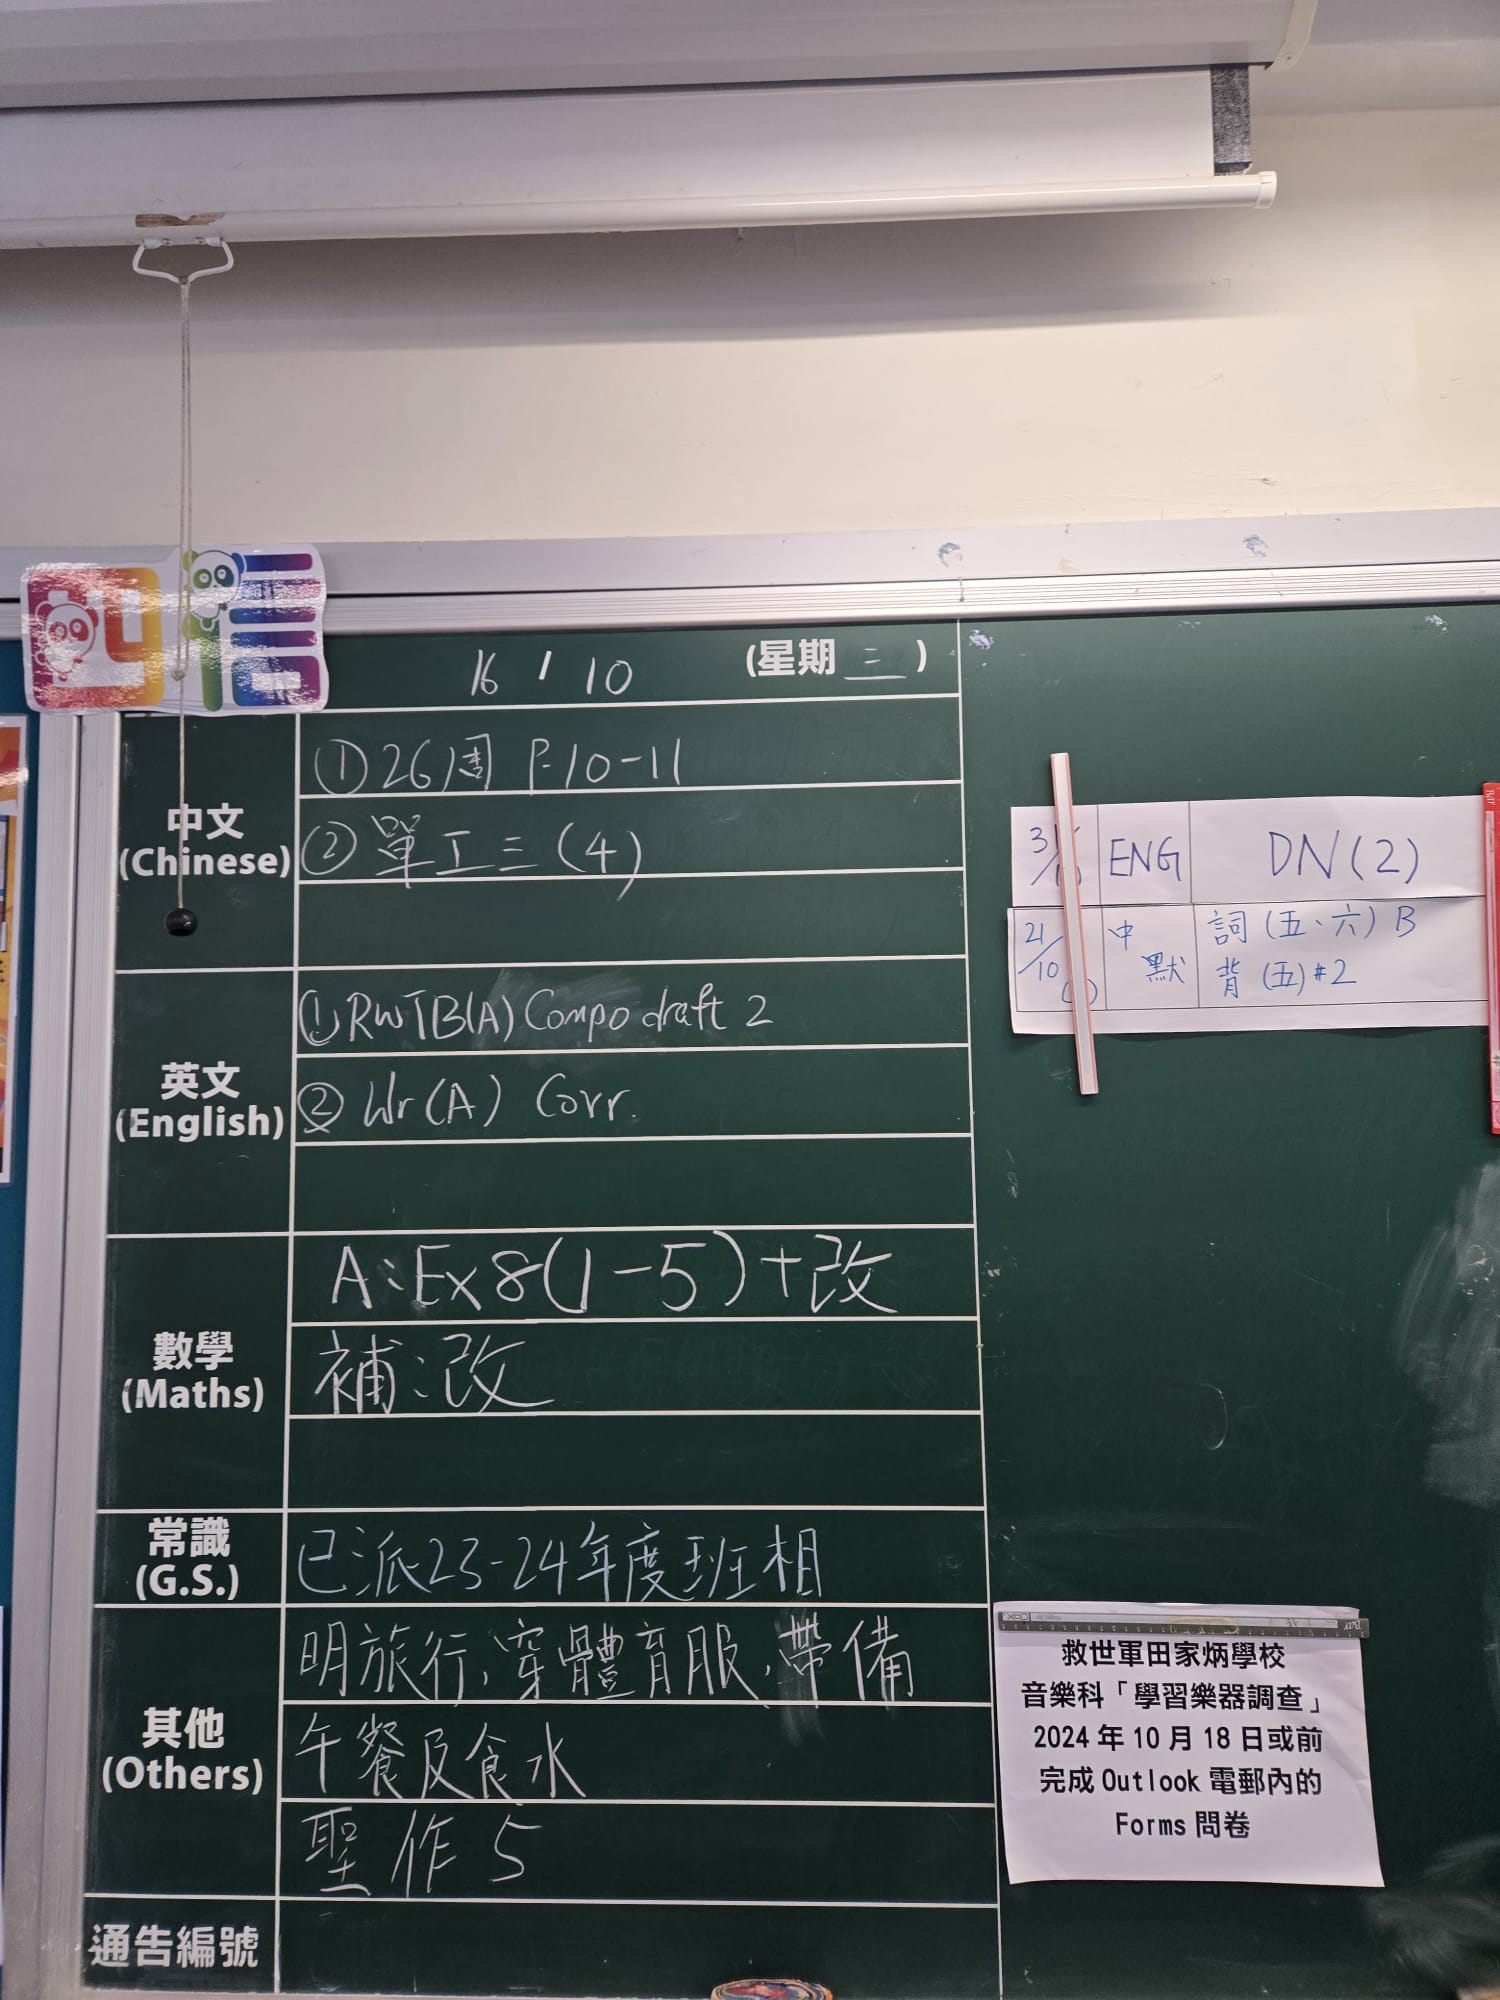 四信
16 / 10 (星期 三 )
中文
(Chinese)
① 26周 P.10-11
② 單工三 (4)
英文
(English)
① RWTB(A) Compo draft 2
② Wr(A) Corr.
數學
(Maths)
A:Ex8(1-5)+改
補:改
常識
(G.S.)
已派23-24年度班相
其他
(Others)
明旅行,穿體育服,帶備
午餐及食水
聖作5
通告編號
ENG DN(2)
21/10 中默 詞(五、六)B
背(五)#2
救世軍田家炳學校
音樂科「學習樂器調查」
2024年10月18日或前
完成Outlook電郵內的
Forms問卷